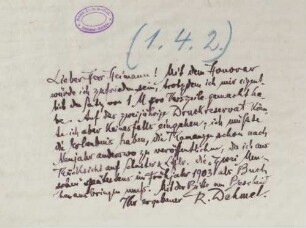 (1.4.2.)
Lieber Herr Heimann! Mit dem Honorar
würde ich zufrieden sein, trotzdem ich mir eigent-
lich den Satz von 1 M pro Verszeile gemacht ha-
be. Auf das zweijährige Druckreservat kön-
te ich aber keinesfalls eingehen; ich müsste
die Erlaubnis haben, die Romanze schon nach
Neujahr anderswo zu veröffentlichen, da ich aus
Rücksicht auf Schuster & Löffler die "Zwei Men-
schen" spätestens im Frühjahr 1903 als Buch
herausbringen muss. Mit der Bitte um Bescheid
Ihr ergebener R. Dehmel.